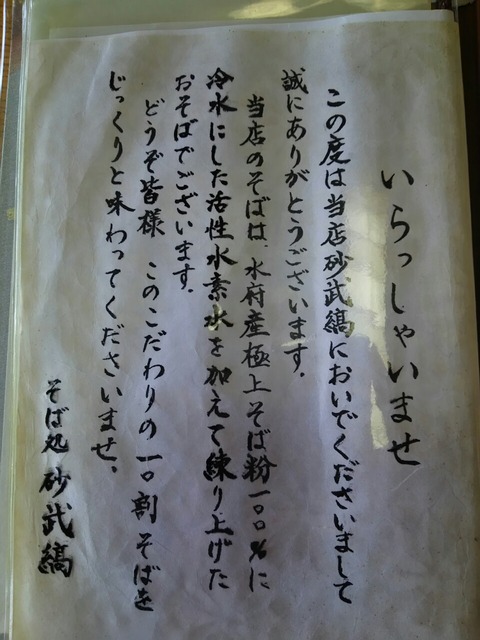 いらっしゃいませ
この度は当店砂武縞においでくださいまして
誠にありがとうございます.
当店のそばは、水府産極上そば粉一〇〇%に
冷水にした活性水素水を加えて練り上げた
おそばでございます.
どうぞ皆様 このこだわりの一〇割そばを
じっくりと味わってくださいませ、
そば処 砂武縞